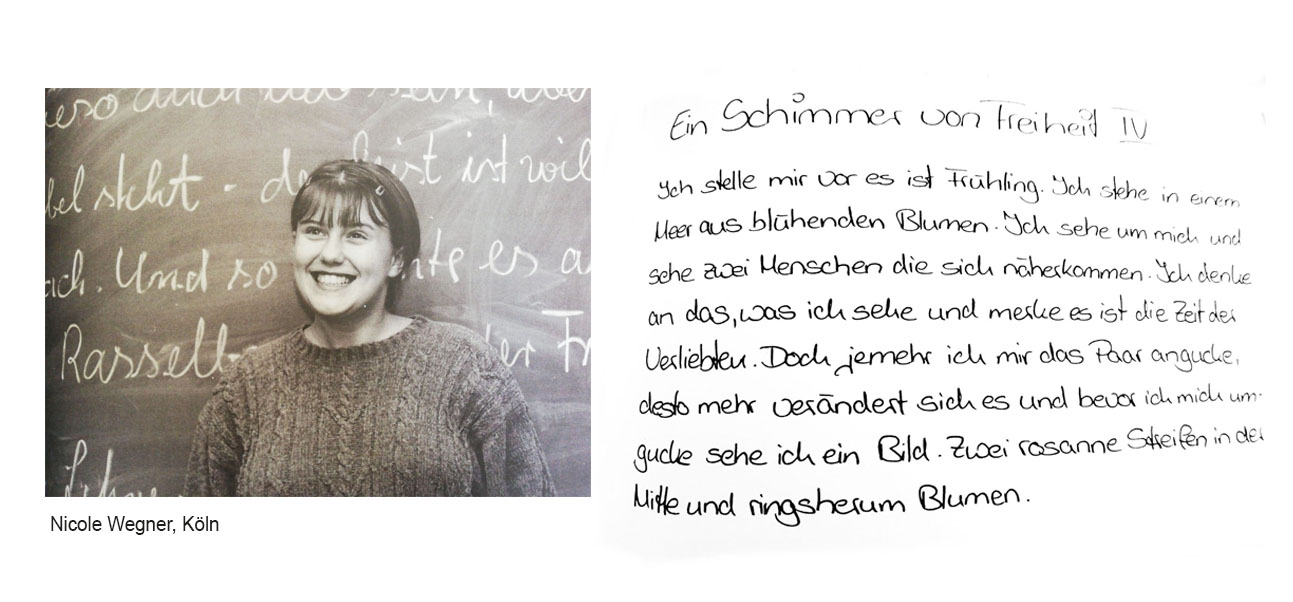 ieso auch das sein, aber
bel steht - der Geist ist voll
ach. Und so te es a
Rassel er Fr
Nicole Wegner, Köln
Ein Schimmer von Freiheit IV
Ich stelle mir vor es ist Frühling. Ich stehe in einem
Meer aus blühenden Blumen. Ich sehe um mich und
sehe zwei Menschen die sich näherkommen. Ich denke
an das, was ich sehe und merke es ist die Zeit der
Verliebten. Doch jemehr ich mir das Paar angucke,
desto mehr verändert sich es und bevor ich mich um-
gucke sehe ich ein Bild. Zwei rosanne Streifen in der
Mitte und ringsherum Blumen.